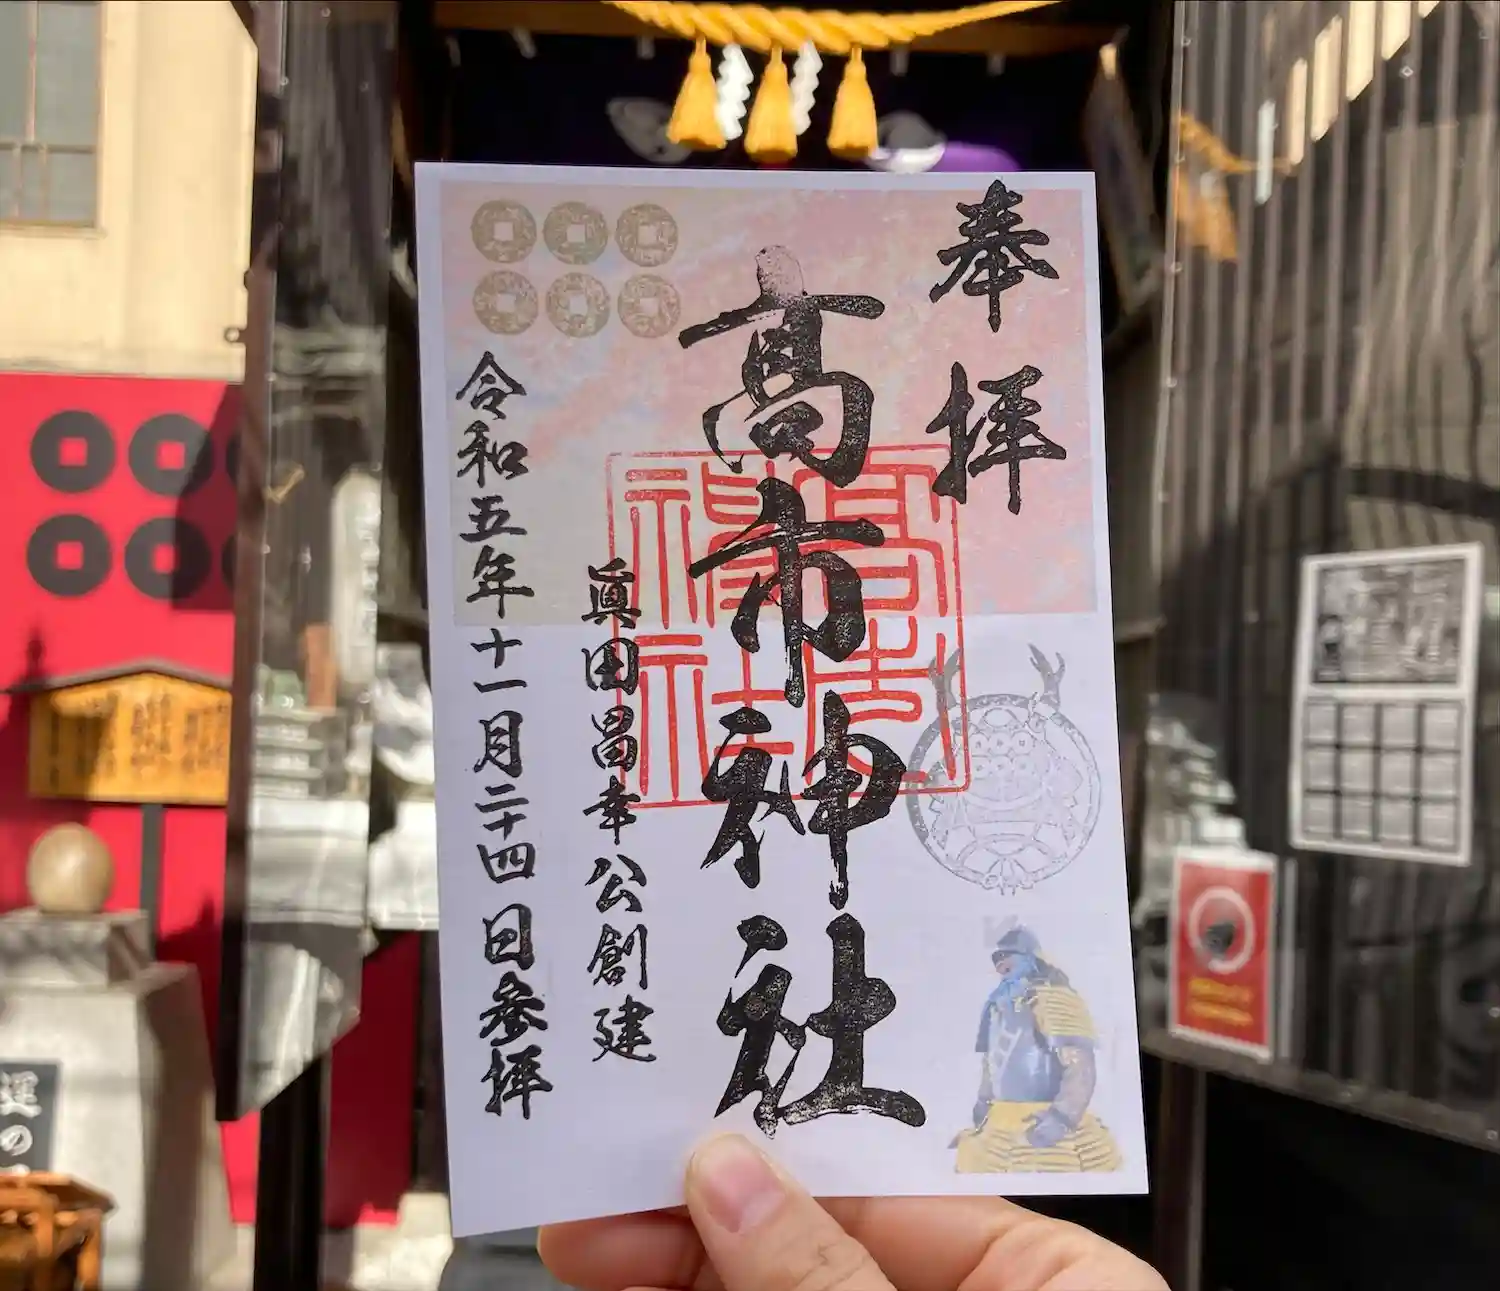 奉拝
高市神社
高市神社
眞田昌幸公創建
令和五年十一月二十四日参拝
運の